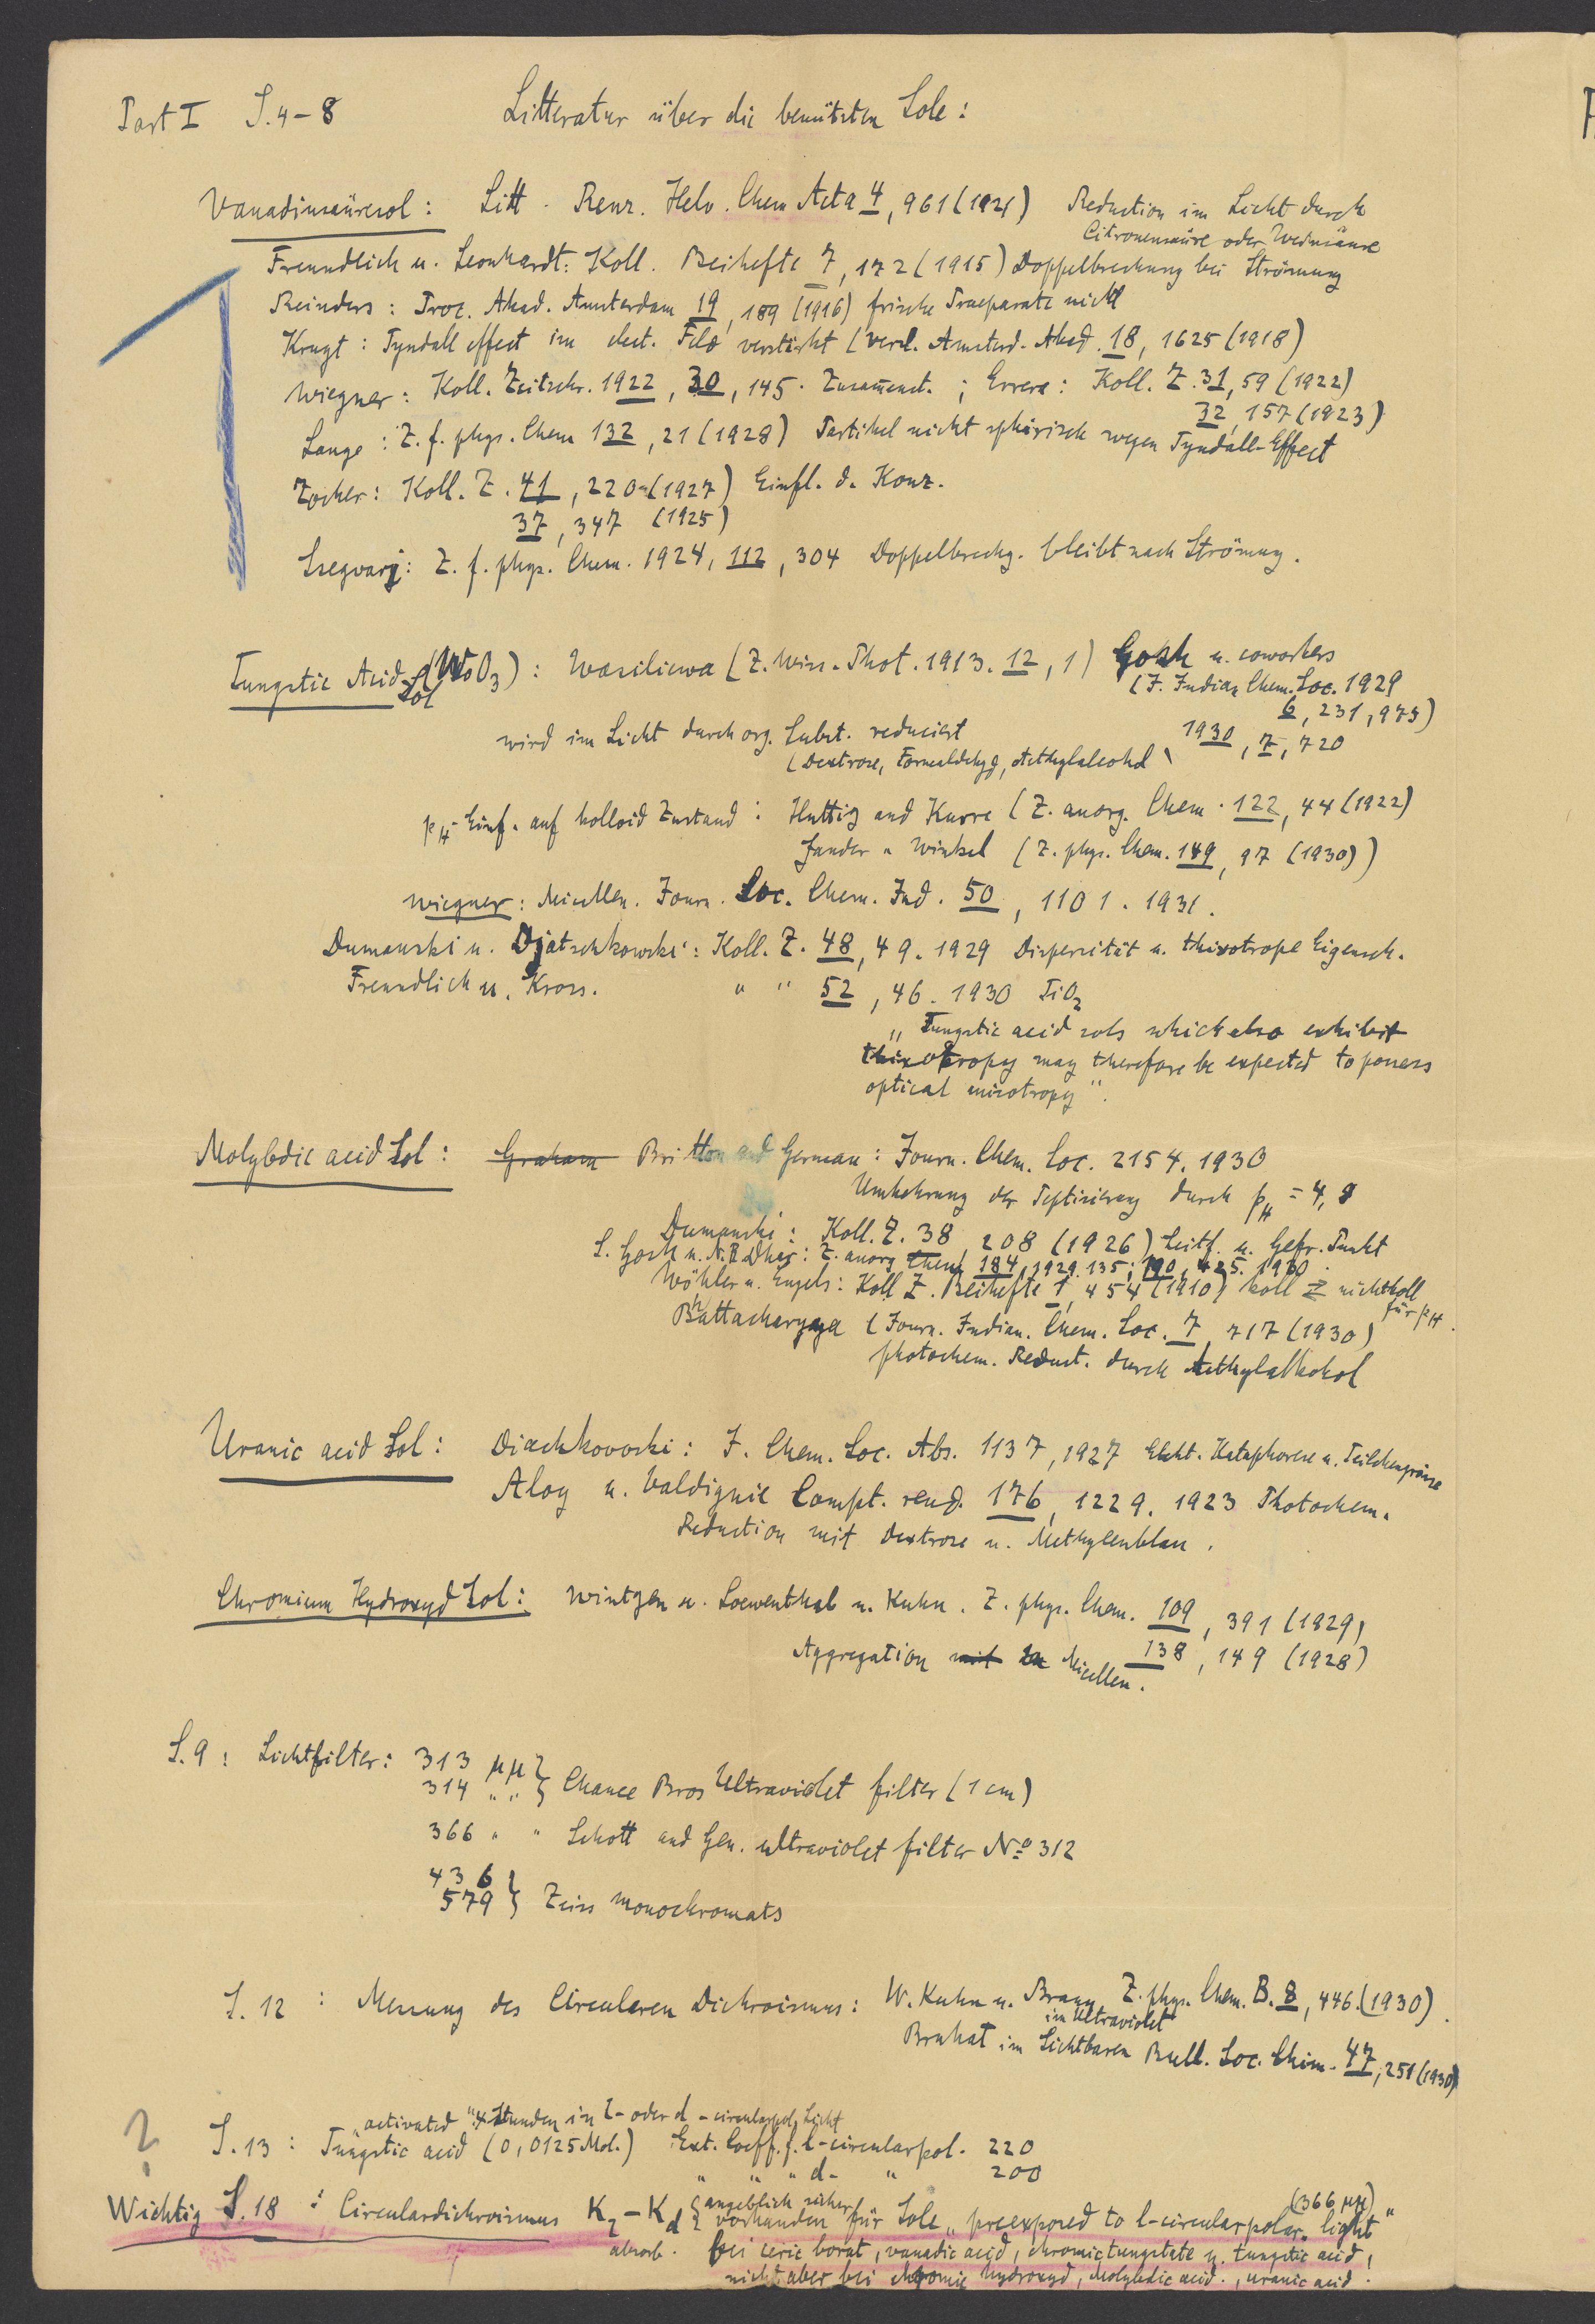 Part I S. 4-8 Litteratur über die benützten Sole:
Vanadinsäuresol: Litt. Renz. Helv. Chem Acta 4, 961 (1921) Reduction im Licht durch
Citronensäure oder Weinsäure
Freundlich u. Leonhardt: Koll. Beihefte 7, 172 (1915) Doppelbrechung bei Strömung
Reinders: Proc. Akad. Amsterdam 19, 189 (1916) frische Praeparate nicht
Kruyt: Tyndall effect im elect. Feld verstärkt (Versl. Amsterd. Akad. 18, 1625 (1918)
Wiegner: Koll. Zeitschr. 1922, 30, 145. Zusam̅enst.; Errera: Koll. Z. 31, 59 (1922)
32, 157 (1923)
Lange: Z. f. phys. Chem 132, 21 (1928) Partikel nicht sphärisch wegen Tyndall-Effect
Zocher: Koll. Z. 41, 220 (1927) Einfl. d. Konz.
37, 347 (1925)
Szegvarj: Z. f. phys. Chem. 1924, 112, 304 Doppelbrechg. bleibt nach Strömung.
Tungstic Acid Sol (WoO3): Wasiliewa (Z. Wiss. Phot. 1913. 12, 1) Gosh u. coworkers
(J. Indian Chem. Soc. 1929
6, 231, 975)
wird im Licht durch org. Subst. reduciert 1930, 7, 720
(Dextrose, Formaldehyd, Aethylalcohol)
pH-Einf. auf kolloid Zustand: Huttig and Kurre (Z. anorg. Chem. 122, 44 (1922)
Jander u Winkel (Z. phys. Chem. 149, 97 (1930))
Wiegner: Micellen. Journ. Soc. Chem. Ind. 50, 1101. 1931.
Dumanski u. Djatschkowski: Koll. Z. 48, 49. 1929 Dispersität u. thixotrope Eigensch.
Freundlich u. Kross. " " 52, 46. 1930 TiO2
„Tungstic acid sols which also exhibit
thixotropy may therefore be expected to possess
optical anisotropy".
Molybdic acid Sol: Graham Britton and German: Journ. Chem. Soc. 2154. 1930
Umkehrung der Peptisierung durch pH = 4,9
Dumanski: Koll. Z. 38, 208 (1926) Leitf. u. Gefr. Punkt
S. Gosh u. N. R Dhar: Z. anorg Chem 184, 1929. 135; 190, 425. 1930.
Wöhler u. Engels: Koll Z. Beihefte 1, 454 (1910) koll nichtkoll
für pH.
Bhattacharyya (Journ. Indian. Chem. Soc. 7, 717 (1930)
photochem. Reduct. durch Aethylalkohol
Uranic acid Sol: Diachkovski: J. Chem. Soc. Abs. 1137, 1927 Elekt. Kataphorese u. Teilchengrösse
Aloy u. Valdiguié Compt. rend. 176, 1229. 1923 Photochem.
Reduction mit Dextrose u. Methylenblau.
Chromium Hydroxyd Sol: Wintgen u. Loewenthal u. Kuhn. Z. phys. Chem. 109, 391 (1929)
138, 149 (1928)
Aggregation mit Micellen.
S. 9: Lichtfilter: 313 μμ
314 " " } Chance Bros Ultraviolet filter (1 cm)
366 " " Schott and Gen. ultraviolet filter No 312
436
579 } Zeiss monochromats
S. 12: Messung des Circularen Dichroismus: W. Kuhn u. Braun Z. phys. Chem. B. 8, 446. (1930).
im Ultraviolet
Bruhat im Sichtbaren Bull. Soc. Chim. 47, 251 (1930)
„activated" 4 Stunden in l- oder d-circularpol. Licht
? S. 13: Tungstic acid (0,0125 Mol.) Ext. Coeff. f. l-circularpol. 220
" " " d- " 200
Wichtig S. 18: Circulardichroismus Kl - Kd { angeblich sicher vorhanden für Sole „preexposed to l-circularpolar. light" (366 μμ)
absorb. bei ceric borat, vanadic acid, chromictungstate u. tungstic acid,
nicht aber bei chromic hydroxyd, Molybdic acid., uranic acid.